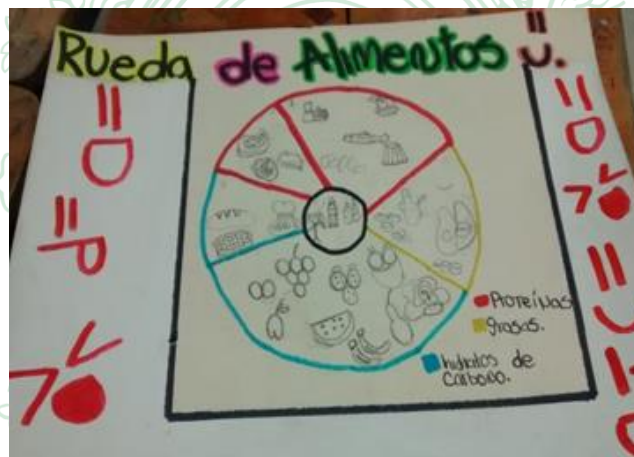 Rueda de Alimentos =).
=D
=P
=D
=)
Proteínas
grasas.
hidratos de
Carbono.